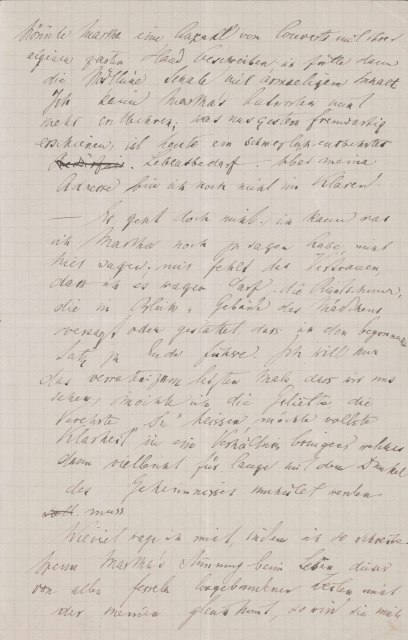 könnte Martha eine Anzahl von Couverts mit ihrer
eigenen zarten Hand beschreiben u. fülle dann
die Schale mit armseligem Inhalt.
Ich kann Martha's Antworten nicht
mehr entbehren; was uns gestern fremdartig
erschienen, ist heute ein schmerzlich entbehrter
Lebensbedarf. Über meine
Adresse bin ich noch nicht im Klaren.
— Es geht doch nicht, ich kann was
ich Martha noch zu sagen habe nicht
hier sagen, mir fehlt das Vertrauen,
dass ich es wagen darf, die
die in Gebärde des Mädchens
versagt oder gestattet, dass ich den begonnenen
Satz zu Ende führe. Ich will nur
das verraten: zum letzten Male, dass wir uns
sehen, möchte ich die Geliebte, die
Verehrte "Du" heissen, möchte vollste
Klarheit in ein Verhältnis bringen, welches
dann vielleicht für lange mit dem Dunkel
des Geheimnisses umhüllt werden
muss
Wieviel wage ich nicht, indem ich so schreibe.
Wenn Martha's Stimmung beim Lesen dieser
von aller Fessel losgebundenen Zeilen nicht
der meinen gleichkommt, so wird sie mich